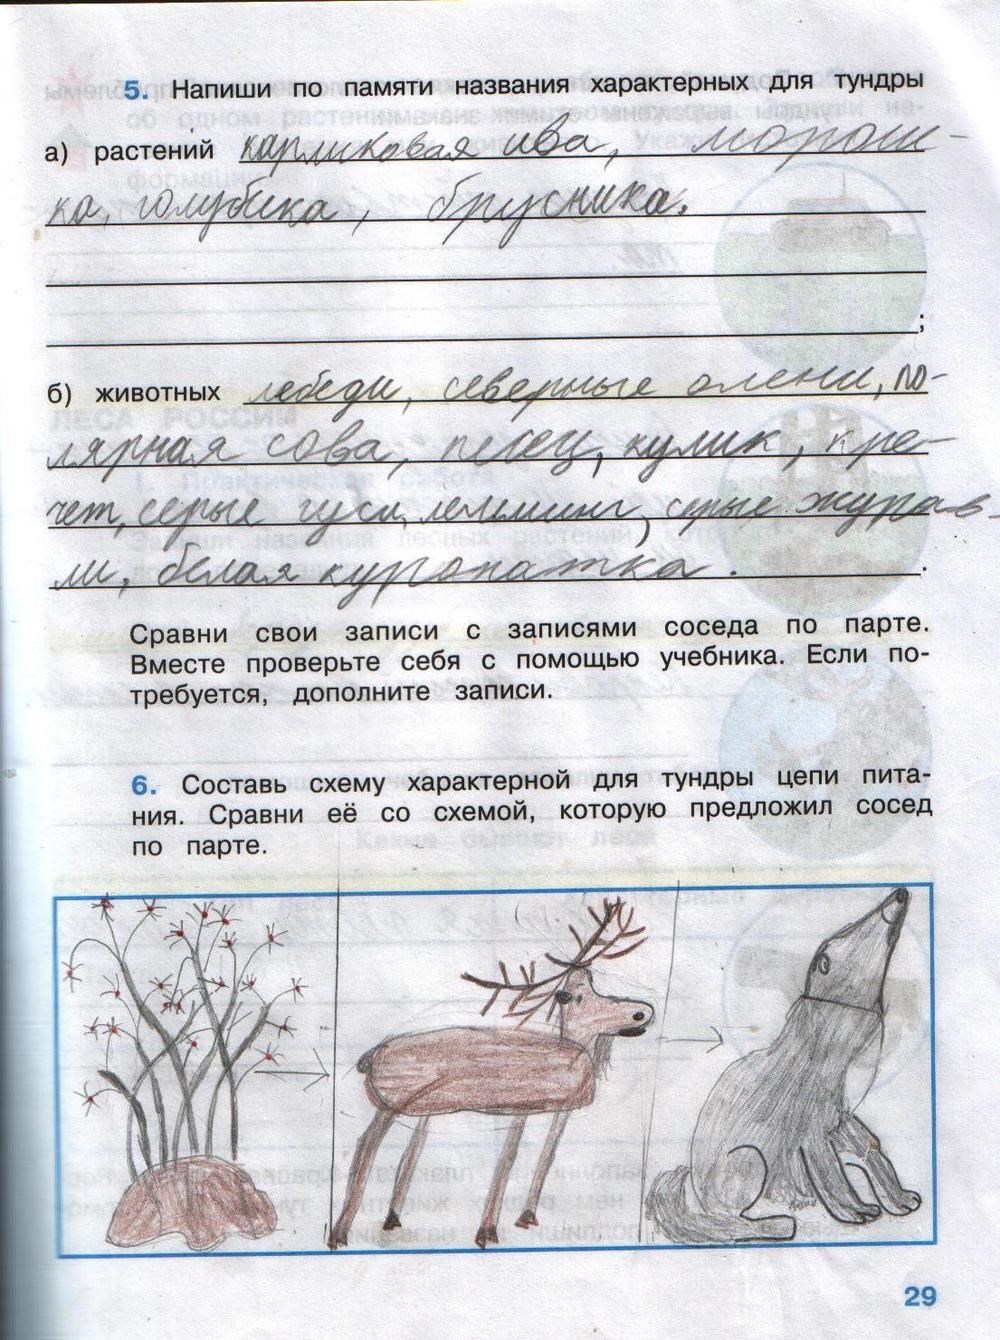 5. Напиши по памяти названия характерных для тундры
а) растений карликовая ива, морош-
ка, голубика, брусника.
;
б) животных лебеди, северные олени, по-
лярная сова, песец, кулик, кре-
чет, серые гуси, лемминг, серые журав-
ли, белая куропатка.
Сравни свои записи с записями соседа по парте.
Вместе проверьте себя с помощью учебника. Если по-
требуется, дополните записи.
6. Составь схему характерной для тундры цепи пита-
ния. Сравни её со схемой, которую предложил сосед
по парте.
29